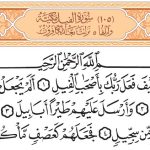 (١٠٥) سُورَةُ الفِيلِ مَكِّيَّة
نزلت بعد الكافرون
اللَّهِ الرَّحْمَٰنِ الرَّحِيمِ
فَعَلَ رَبُّكَ بِأَصْحَٰبِ الْفِيلِ ١ أَلَمْ يَجْعَلْ
٢ وَأَرْسَلَ عَلَيْهِمْ طَيْرًا أَبَابِيلَ ٣
مِّن سِجِّيلٍ ٤ فَجَعَلَهُمْ كَعَصْفٍ